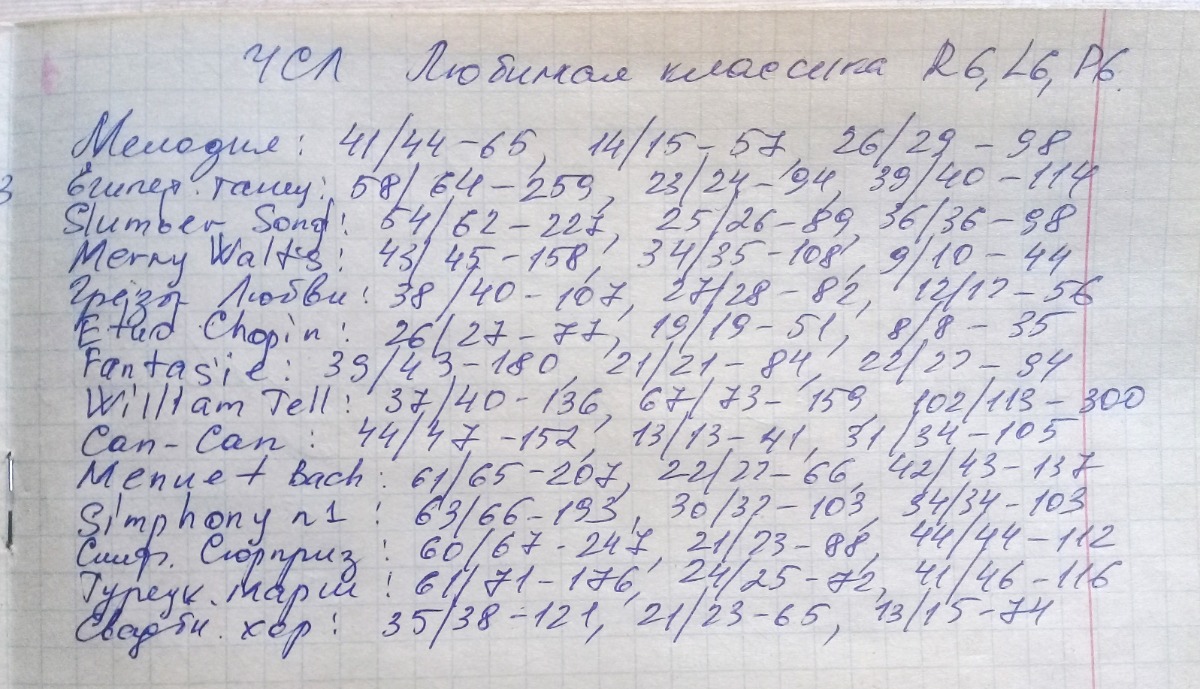 ЧСЛ Любимая классика R6, L6, P6.
Мелодия: 41/44-65, 14/15-57, 26/29-98
3 Египет. танец: 58/64-259, 23/24-94, 39/40-114
Slumber Song: 54/62-227, 25/26-89, 36/36-98
Merry Walts: 43/45-158, 34/35-108, 9/10-44
Грёзы Любви: 38/40-107, 27/28-82, 12/12-56
Etud Chopin: 26/27-77, 19/19-51, 8/8-35
Fantasie: 39/43-180, 21/21-84, 22/22-94
William Tell: 37/40-136, 67/73-159, 102/113-300
Can-Can: 44/47-152, 13/13-41, 31/34-105
Menuet Bach: 61/65-207, 22/22-66, 42/43-137
Simphony n1: 63/66-193, 30/32-103, 34/34-103
Симф. Сюрприз: 60/67-247, 21/23-88, 44/44-112
Турецк. марш: 61/71-176, 24/25-72, 41/46-116
Свадебн. хор: 35/38-121, 21/23-65, 13/15-74